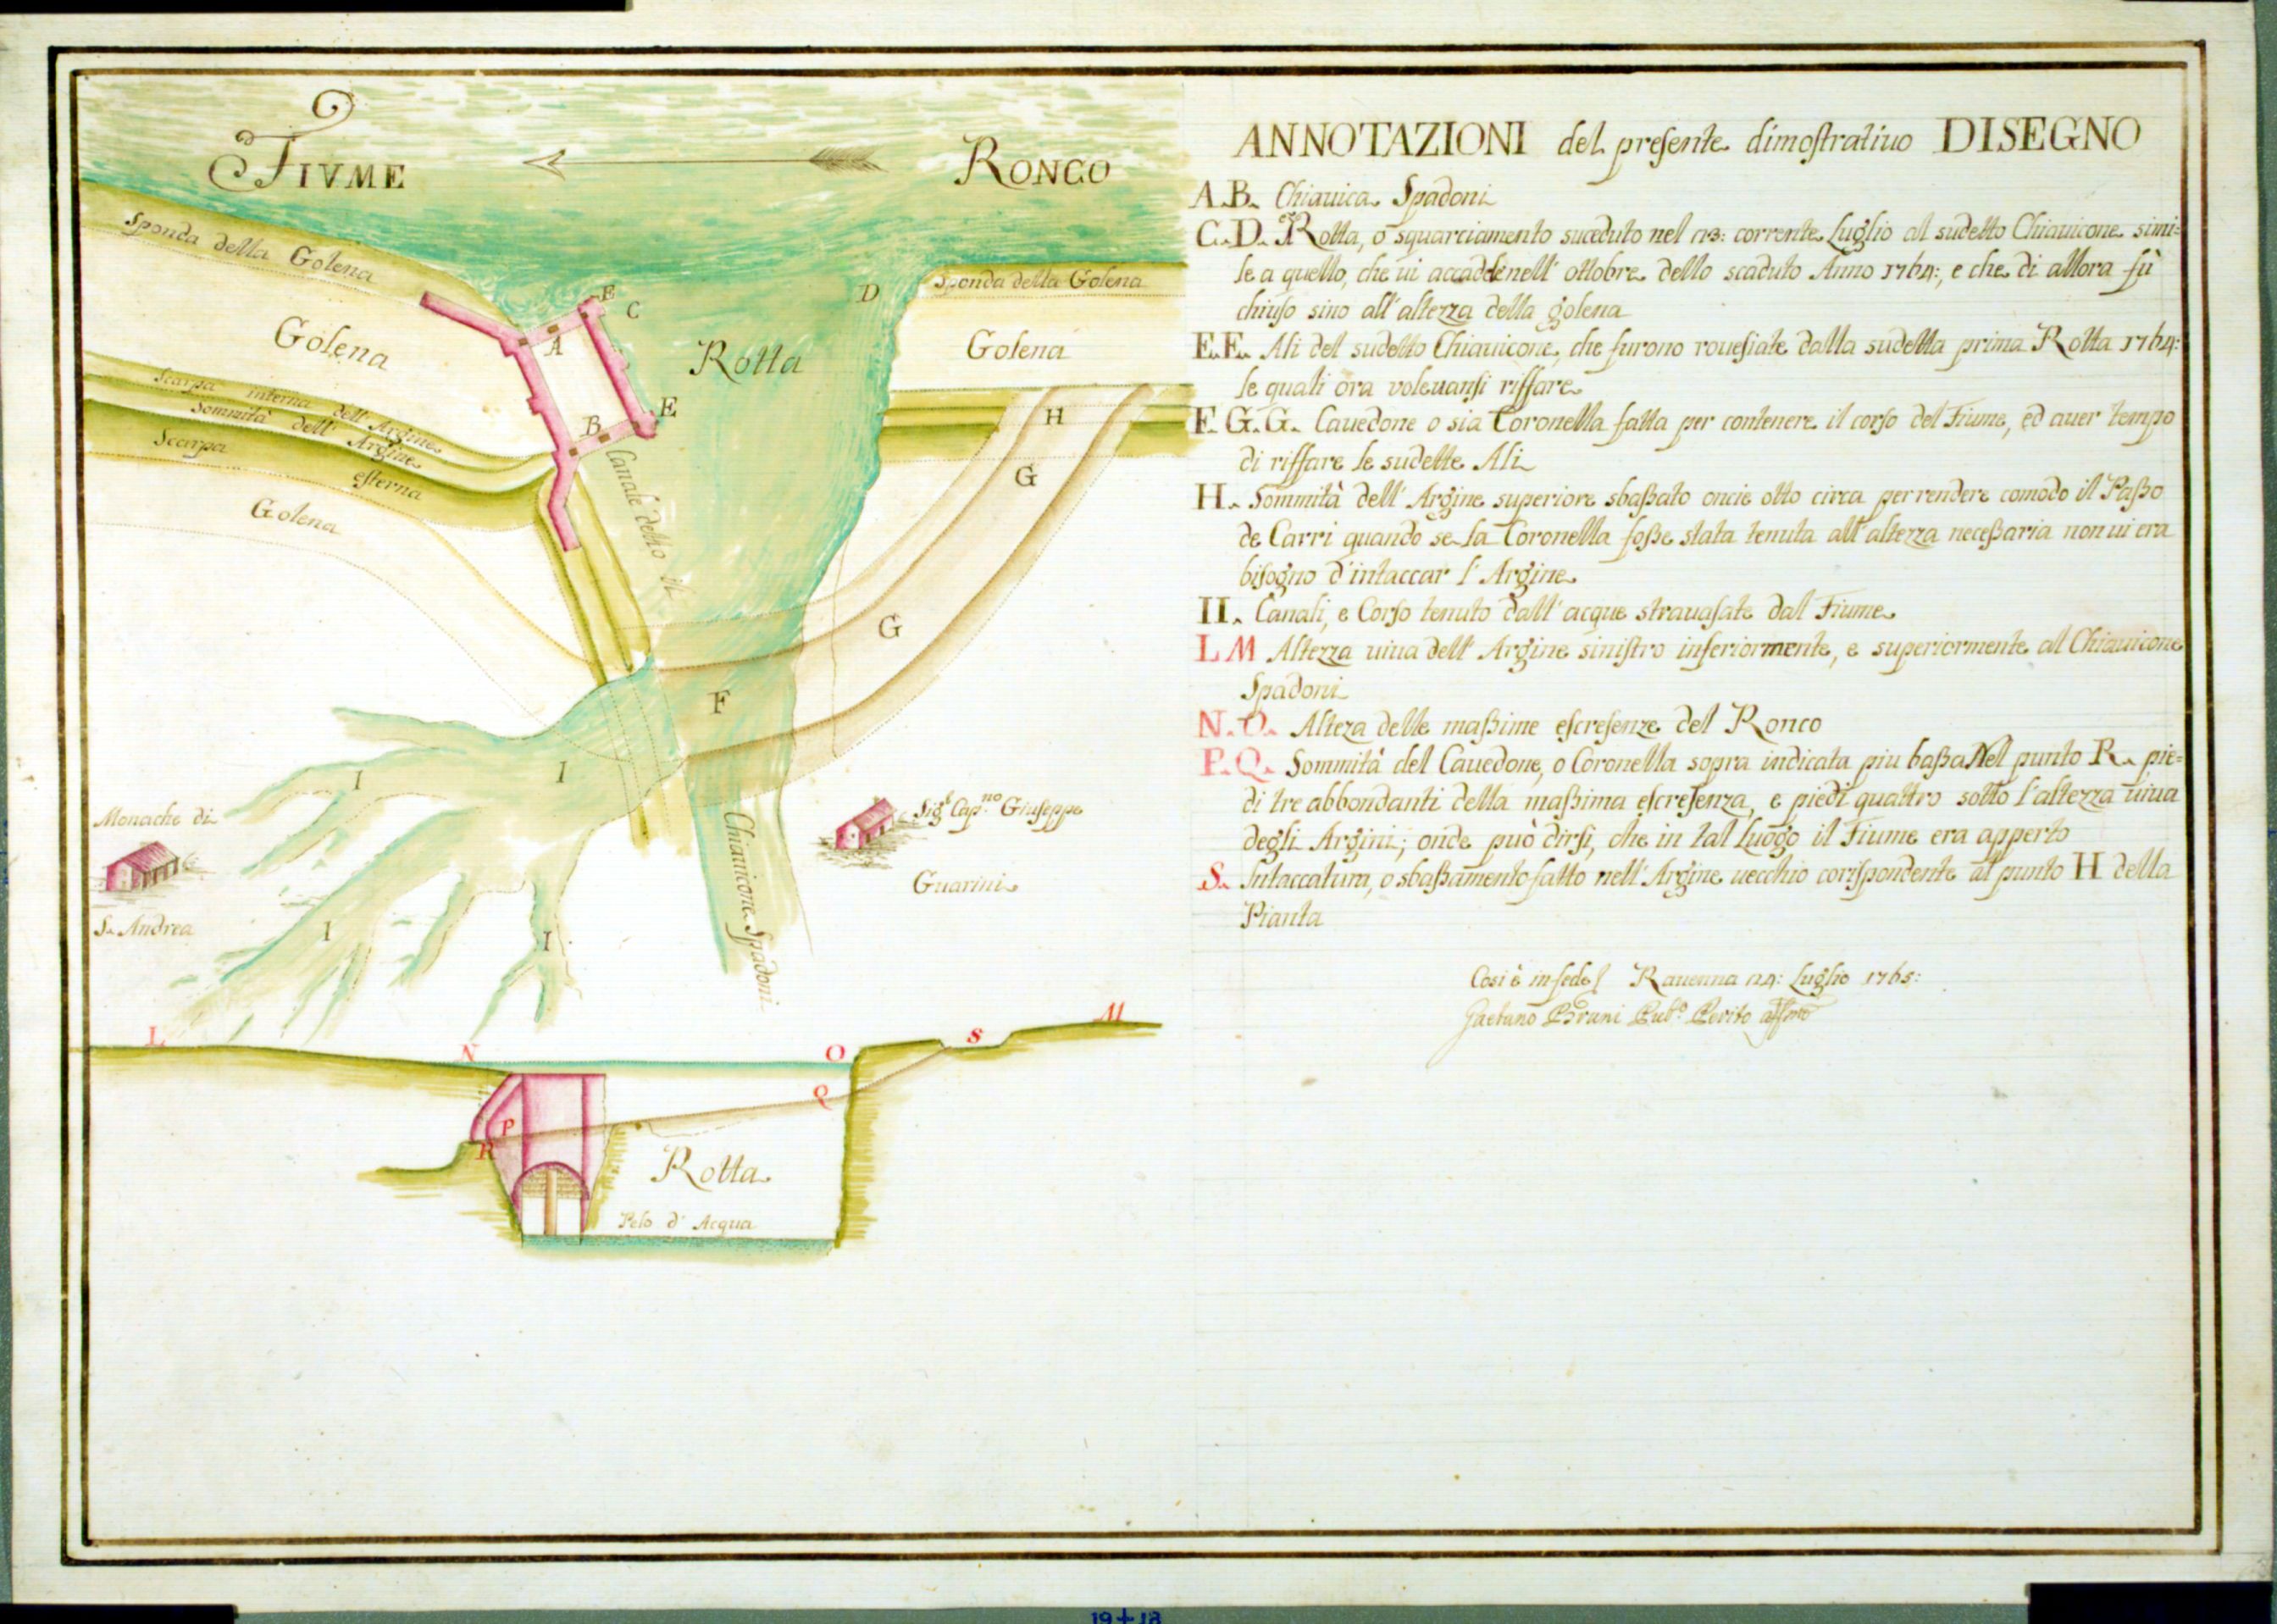 FIVME
RONCO
Sponda della Golena
Sponda della Golena
Golena
Golena
Rotta
A
B
C
D
E
E
H
G
G
F
Scarpa interna dell' Argine
Sommità dell' Argine
Scarpa esterna
Golena
Canale detto il
Chiauicone Spadoni
I
I
I
I
Monache di
S. Andrea
Sig.r Cap.no Giuseppe
Guarini
L
N
O
S
M
Q
P
R
Rotta
Pelo d' Acqua
ANNOTAZIONI del presente dimostratiuo DISEGNO
A.B. Chiauica Spadoni
C.D. Rotta, o squarciamento suceduto nel 13: corrente Luglio al sudetto Chiauicone simi=
le a quello, che ui accadde nell' ottobre dello scaduto Anno 1764:, e che di allora fù
chiuso sino all' altezza della golena
E.E. Ali del sudetto Chiauicone, che furono rouesiate dalla sudetta prima Rotta 1764:
le quali ora voleuansi riffare
F.G.G. Cauedone o sia Coronella fatta per contenere il corso del Fiume, ed auer tempo
di riffare le sudette Ali
H. Sommità dell' Argine superiore sbassato oncie otto circa per rendere comodo il Passo
de Carri quando se la Coronella fosse stata tenuta all' altezza necessaria non ui era
bisogno d' intaccar l' Argine
II. Canali, e Corso tenuto dall' acque strauasate dal Fiume
L M Altezza uiua dell' Argine sinistro inferiormente, e superiormente al Chiauicone
Spadoni
N.O. Alteza delle massime escresenze del Ronco
P.Q. Sommità del Cauedone, o Coronella sopra indicata piu bassa Nel punto R. pie=
di tre abbondanti della massima escresenza, e piedi quattro sotto l' altezza uiua
degli Argini; onde può dirsi, che in tal Luogo il Fiume era apperto
S. Intaccatura, o sbassamento fatto nell' Argine uecchio corispondente al punto H della
Pianta
Cosi è in fede Rauenna 24: Luglio 1765:
Gaetano Bruni Pub.o Perito
19+18